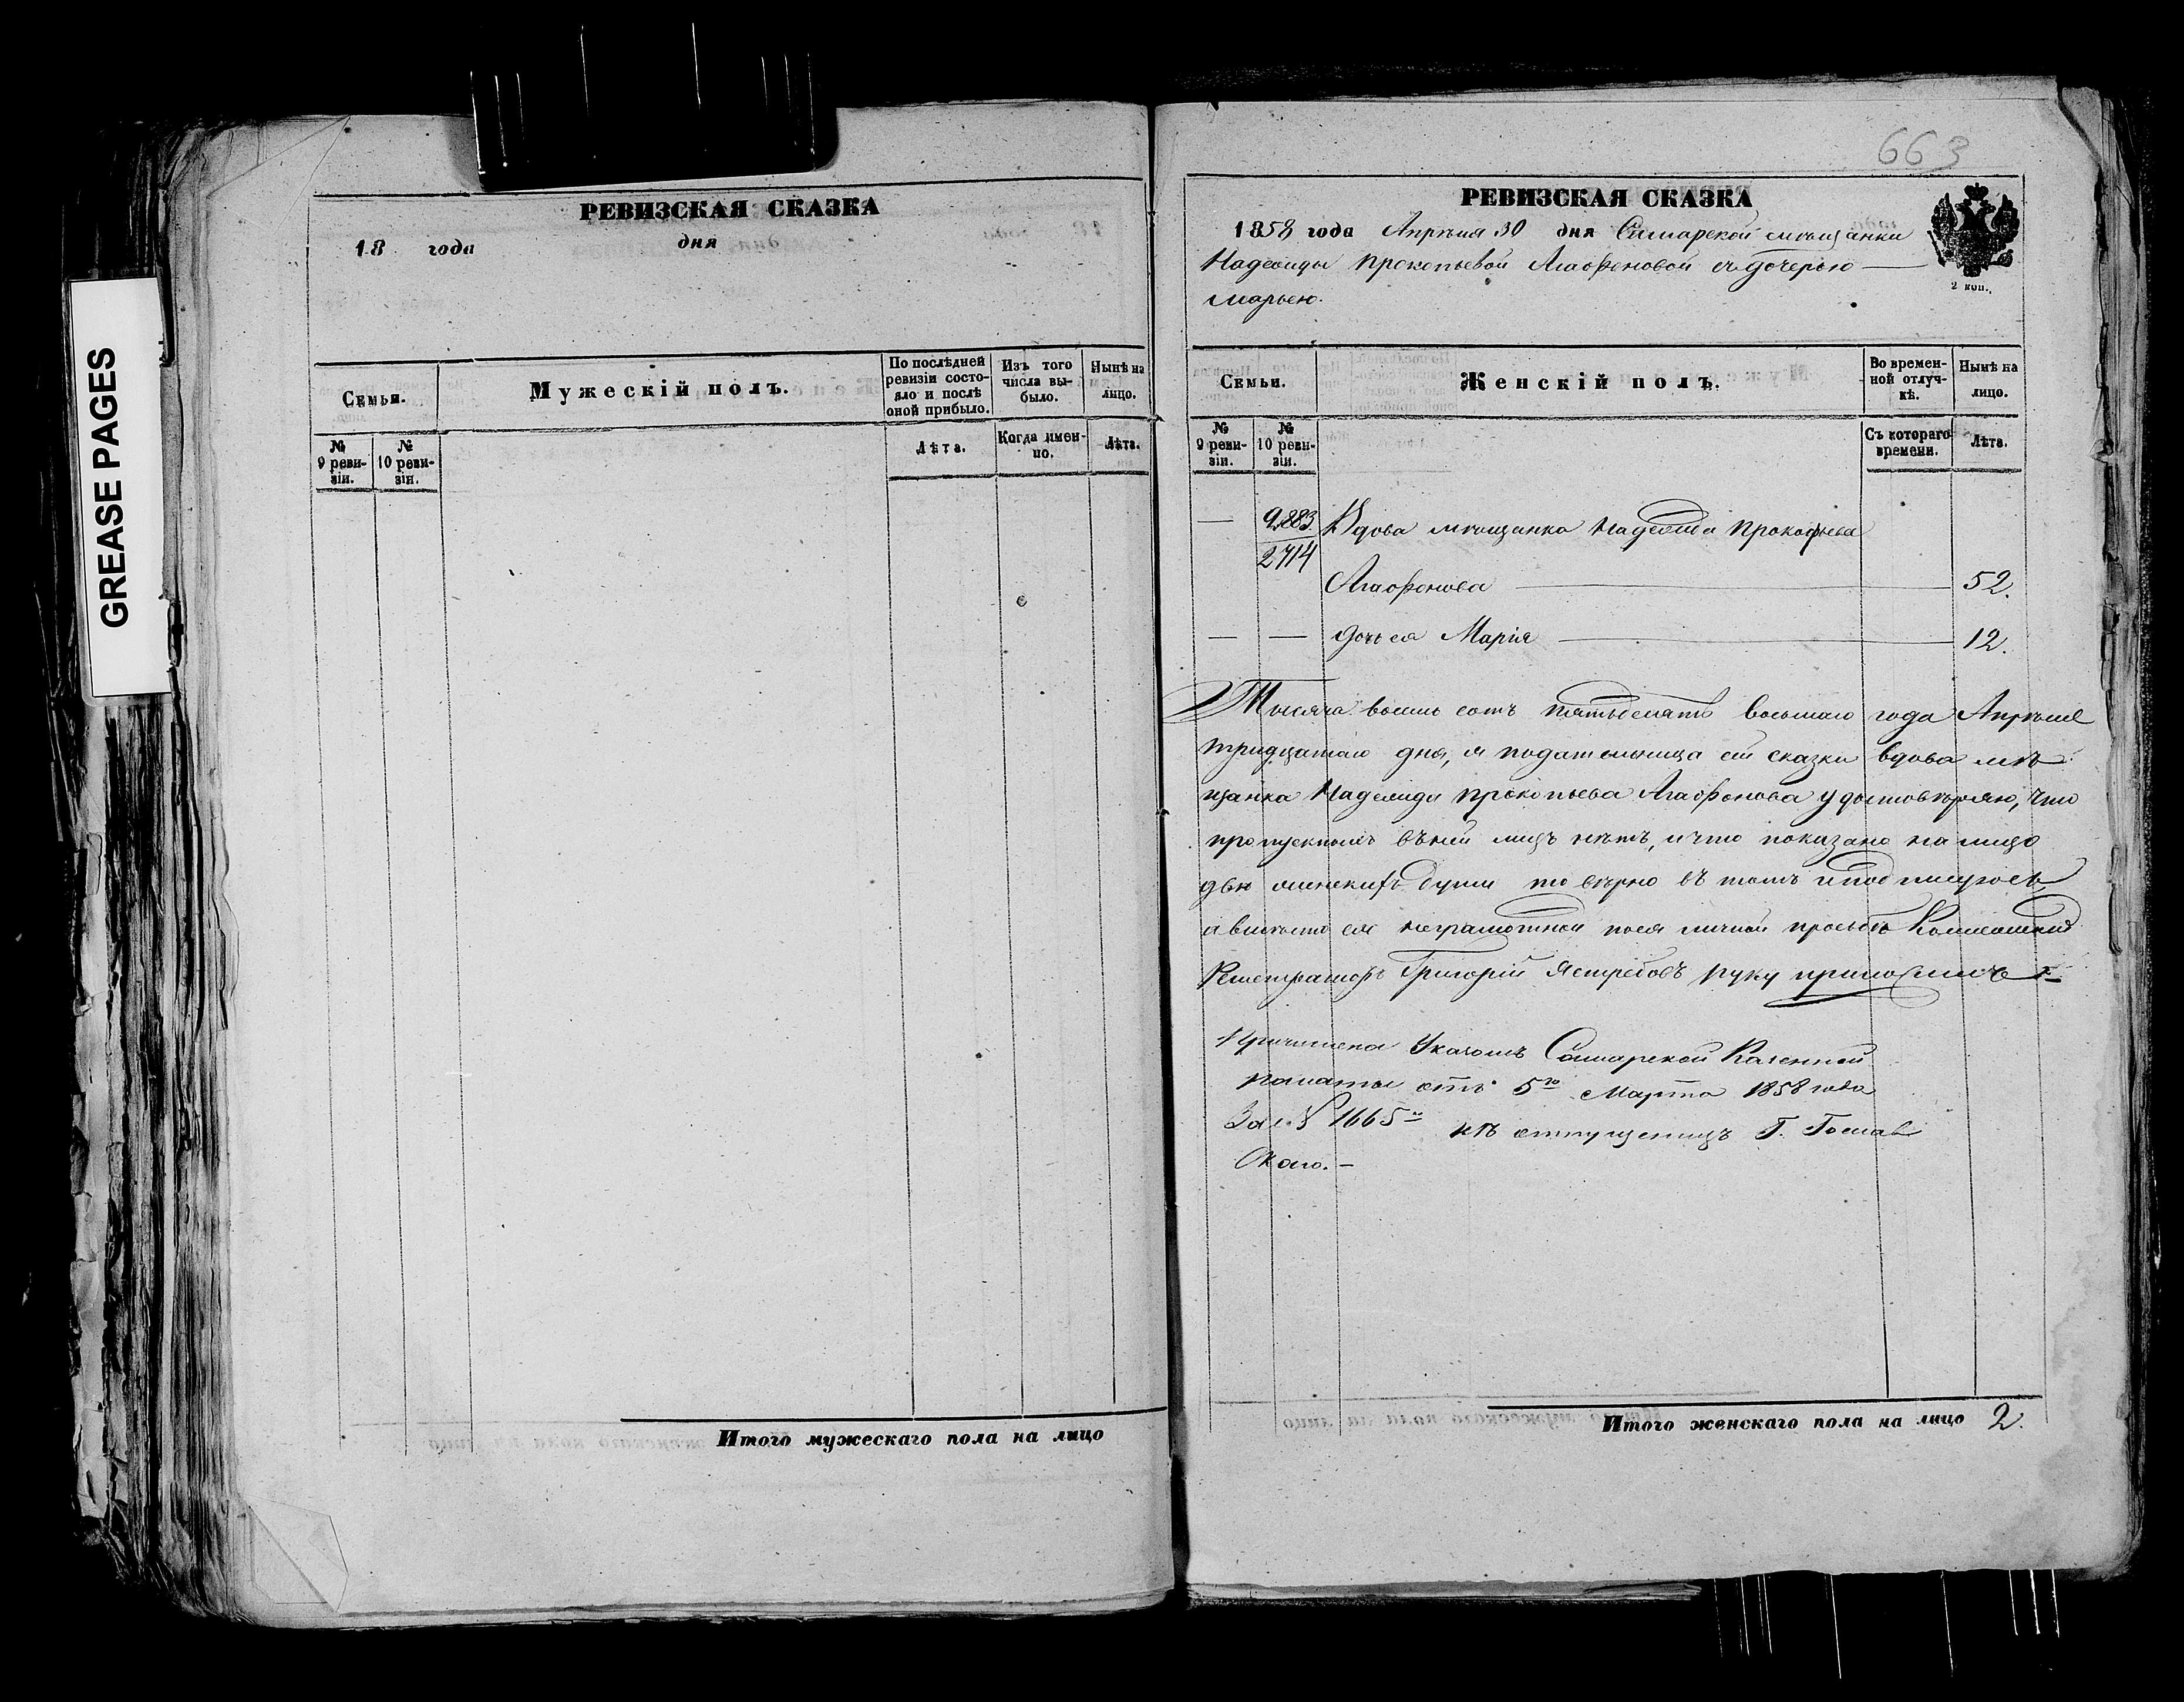 GREASE PAGES
РЕВИЗСКАЯ СКАЗКА
18 года дня
Семьи.
Мужескій полъ.
По послѣдней ревизіи состояло и послѣ оной прибыло.
Изъ того числа выбыло.
Нынѣ на лицо.
№ 9 ревизіи.
№ 10 ревизіи.
Лѣта.
Когда именно.
Лѣта.
Итого мужескаго пола на лицо
663
РЕВИЗСКАЯ СКАЗКА
1858 года Апрѣля 30 дня Самарской мѣщанки
Надежды Прокопьевой Агафоновой съ дочерью
Марьею.
2 коп.
Семьи.
Женскій полъ.
Во временной отлучкѣ.
Нынѣ на лицо.
№ 9 ревизіи.
№ 10 ревизіи.
Съ котораго времени.
Лѣта.
— 9,883. Вдова мѣщанка Надежда Прокофьева
2714
Агафонова — 52.
— — дочь ея Марія — 12.
Тысяча восемь сотъ пятьдесятъ восьмаго года Апрѣля
тридцатаго дня, я подательница сей сказки вдова мѣ-
щанка Надежда Прокопьева Агафонова удостовѣряю, что
пропускныхъ въ ней лицъ нѣтъ, и что показано на лицо
двѣ женскихъ души то вѣрно въ томъ и подписуюсь
а вмѣсто ея неграмотной по ея личной просьбѣ Коллежскій
Регистраторъ Григорій Ястребовъ руку приложилъ
Причислена Указомъ Самарской Казенной
палаты отъ 5го Марта 1858 года
За № 1665м къ отпущенницъ Г.
скаго. —
Итого женскаго пола на лицо 2.